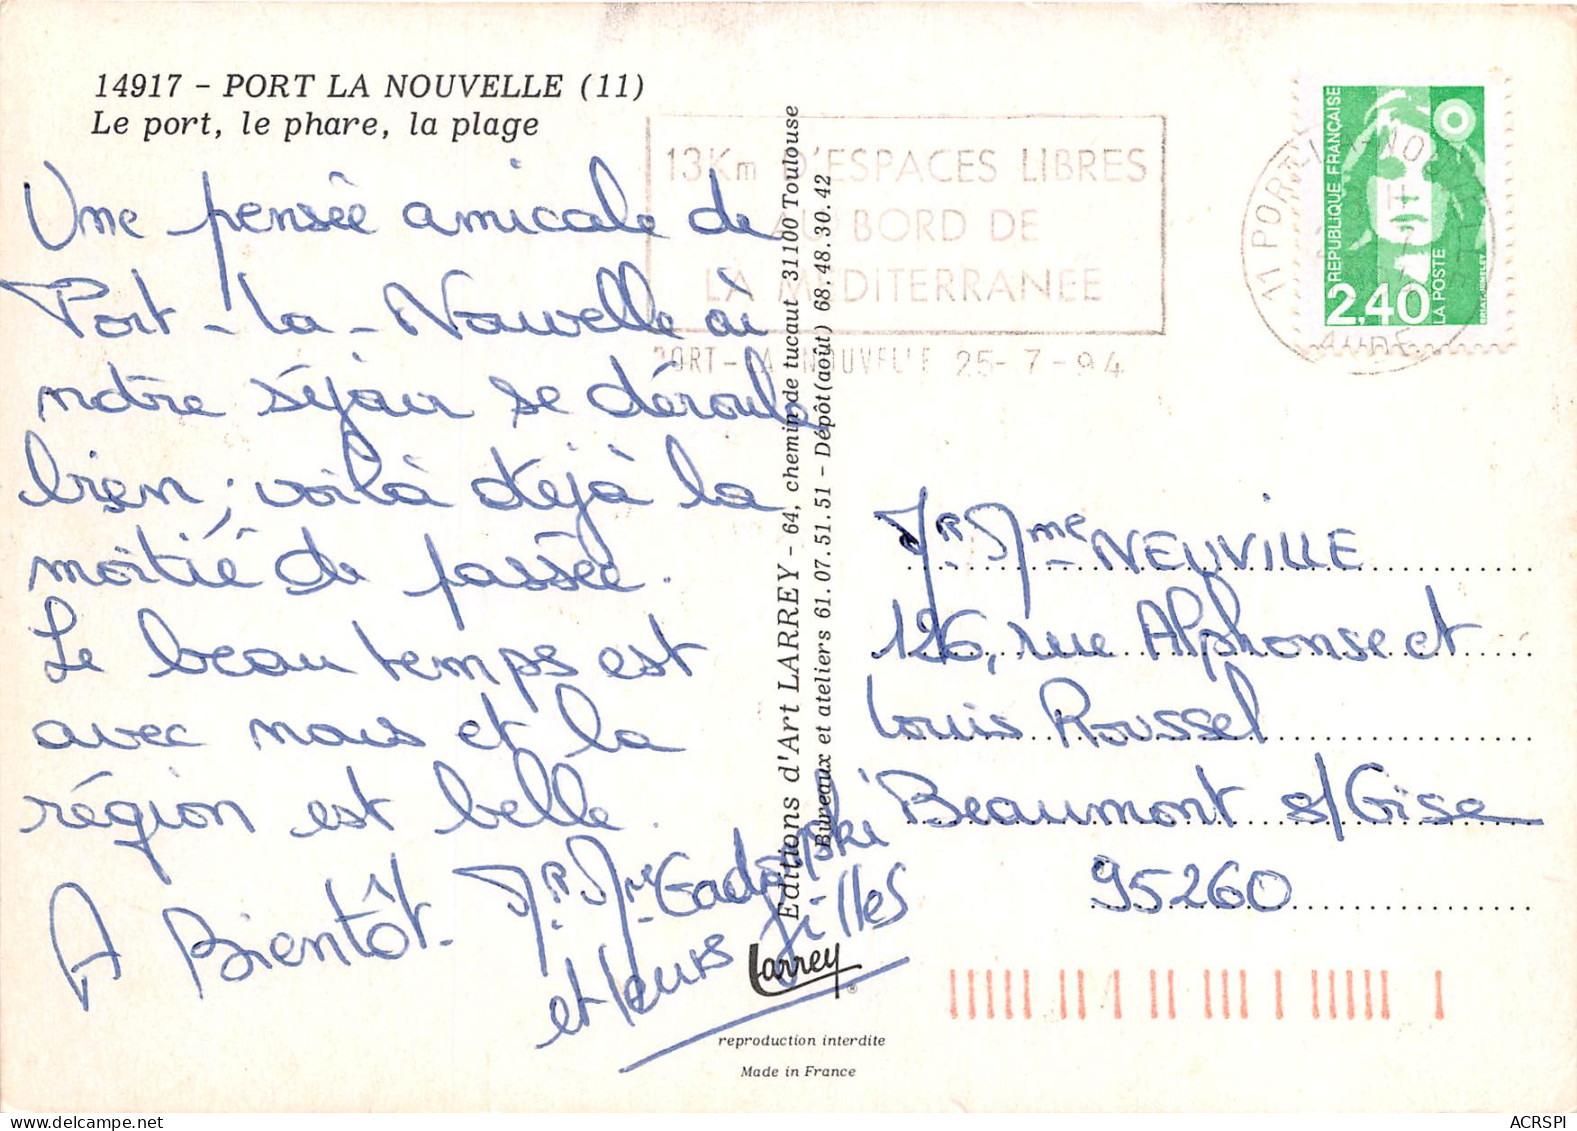 14917 - PORT LA NOUVELLE (11)
Le port, le phare, la plage
Une pensée amicale de
Port-la-Nouvelle où
notre séjour se déroule
bien; voilà déjà la
moitié de passée.
Le beau temps est
avec nous et la
région est belle.
A Bientôt.
Mr. Mme
et leurs filles
Editions d'Art LARREY - 64, chemin de tucaut 31100 Toulouse
Bureaux et ateliers 61.07.51.51 - Dépôt (août) 68.48.30.42
Larrey
®
reproduction interdite
Made in France
13Km D'ESPACES LIBRES
AU BORD DE
LA MEDITERRANEE
PORT-LA-NOUVELLE 25-7-94
11 PORT-LA-NOUVELLE
AUDE
REPUBLIQUE FRANÇAISE
2,40
LA POSTE
BRIAT-JUMELET
Mr. Mme NEUVILLE
126, rue Alphonse et
Louis Roussel
Beaumont s/Oise
95260
ACRSPI